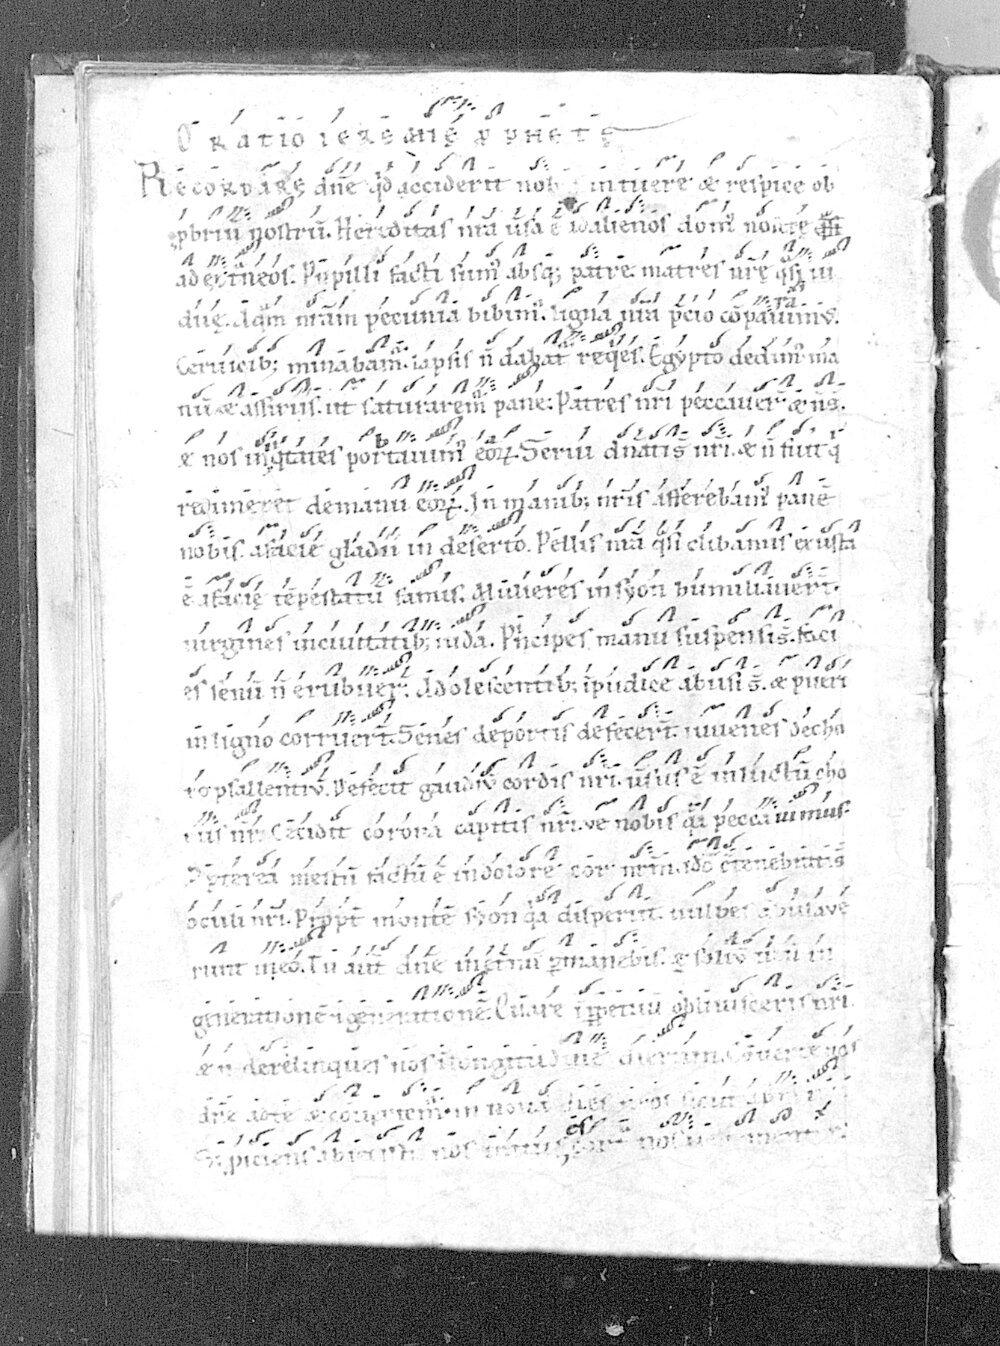 ORATIO IEREMIĘ PPHETĘ
Recordare dn̄e qd acciderit nob intuere æ respice ob
pbriū nostrū. Hereditas nr̄a ūsa ē adalienos domꝰ nostrę
ad extͣneos. Pupilli facti sumꝰ absq; patre. matres nrę qͣsi ui
duę. Aqͣm nr̄am pecunia bibimꝰ. ligna nr̄a p̄cio cōparauimꝰ.
Ceruicib; minabamꝰ. lapsis n̄ dabat reqͥes. Egypto dedimꝰ ma
nū æ assiriis. ut saturaremꝰ pane. Patres nr̄i peccauerꝭ æ n̄ s̄.
æ nos iniqͥtates portauimꝰ eoꝝ. Serui dn̄ati s̄ nr̄i. æ n̄ fuit qͥ
redimeret demanu eoꝝ. In manib; nr̄is afferebamꝰ panē
nobis. afacie gladii in deserto. Pellis nr̄a qͣsi clibanus exusta
ē afacię tēpestatū famis. Mulieres insyon humiliauerꝭ.
uirgines inciuitatib; iuda. Pͥncipes manu suspensi s̄. faci
es senū n̄ erubuerꝭ. Adolescentib; īpudice abusi s̄. æ pueri
in ligno corruerꝭ. Senes deportis defecerꝭ. iuuenes decho
ro psallentiū. Defecit gaudiū cordis nr̄i. ūsus ē in luctū cho
rus nr̄. Cecidit corona capitis nr̄i. ve nobis qͣa peccauimus.
Ppterea mestū factū ē in dolore cor nr̄m. ido cͨtenebrati s̄
oculi nr̄i. Propt̄ montē syon qͣa disperiit. uulpes ābulave
runt in eo. Tu aut̄ dn̄e inet̄nū ꝑmanebis. æ soliū tuū in
generationē i generationē. Quare īꝑpetuū obliuisceris nr̄i.
æ n̄ derelinques nos īlongitudine dierum. Cōuerte nos
dn̄e adte æ cōuertemꝰ. in noua dies nr̄os sicut
piciens abiecisti nos iratus es contra nos uehementer.